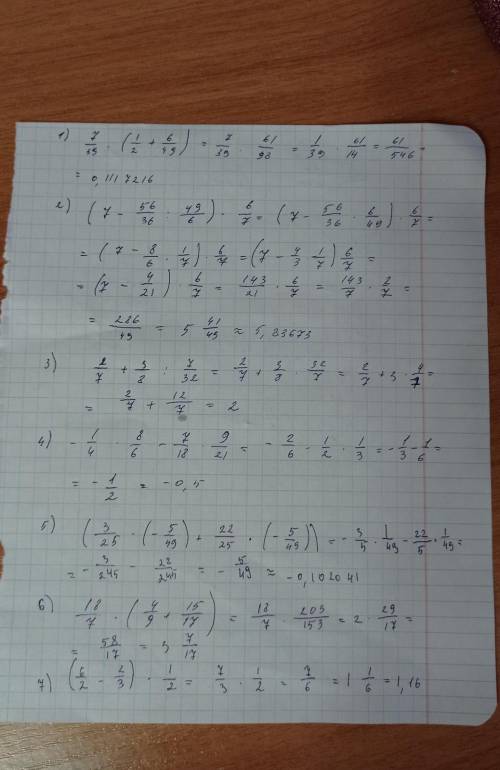 1) 7/39 · (1/2 + 6/49) = 7/39 · 61/98 = 1/39 · 61/14 = 61/546 =
= 0,1117216
2) (7 - 56/36 : 49/6) · 6/7 = (7 - 56/36 · 6/49) · 6/7 =
= (7 - 8/6 · 1/7) · 6/7 = (7 - 4/3 · 1/7) 6/7 =
= (7 - 4/21) · 6/7 = 143/21 · 6/7 = 143/7 · 2/7 =
= 286/49 = 5 41/49 ≈ 5,83673
3) 2/7 + 3/8 : 7/32 = 2/7 + 3/8 · 32/7 = 2/7 + 3 · 4/7 =
= 2/7 + 12/7 = 2
4) - 1/4 · 8/6 - 7/18 · 9/21 = - 2/6 - 1/2 · 1/3 = - 1/3 - 1/6 =
= - 1/2 = -0,5
5) (3/25 · (- 5/49) + 22/25 · (- 5/49)) = - 3/5 · 1/49 - 22/5 · 1/49 =
= - 3/245 - 22/245 = - 5/49 ≈ -0,102041
6) 18/7 · (4/9 + 15/17) = 18/7 · 203/153 = 2 · 29/17 =
= 58/17 = 3 7/17
7) (6/2 - 2/3) · 1/2 = 7/3 · 1/2 = 7/6 = 1 1/6 = 1,16